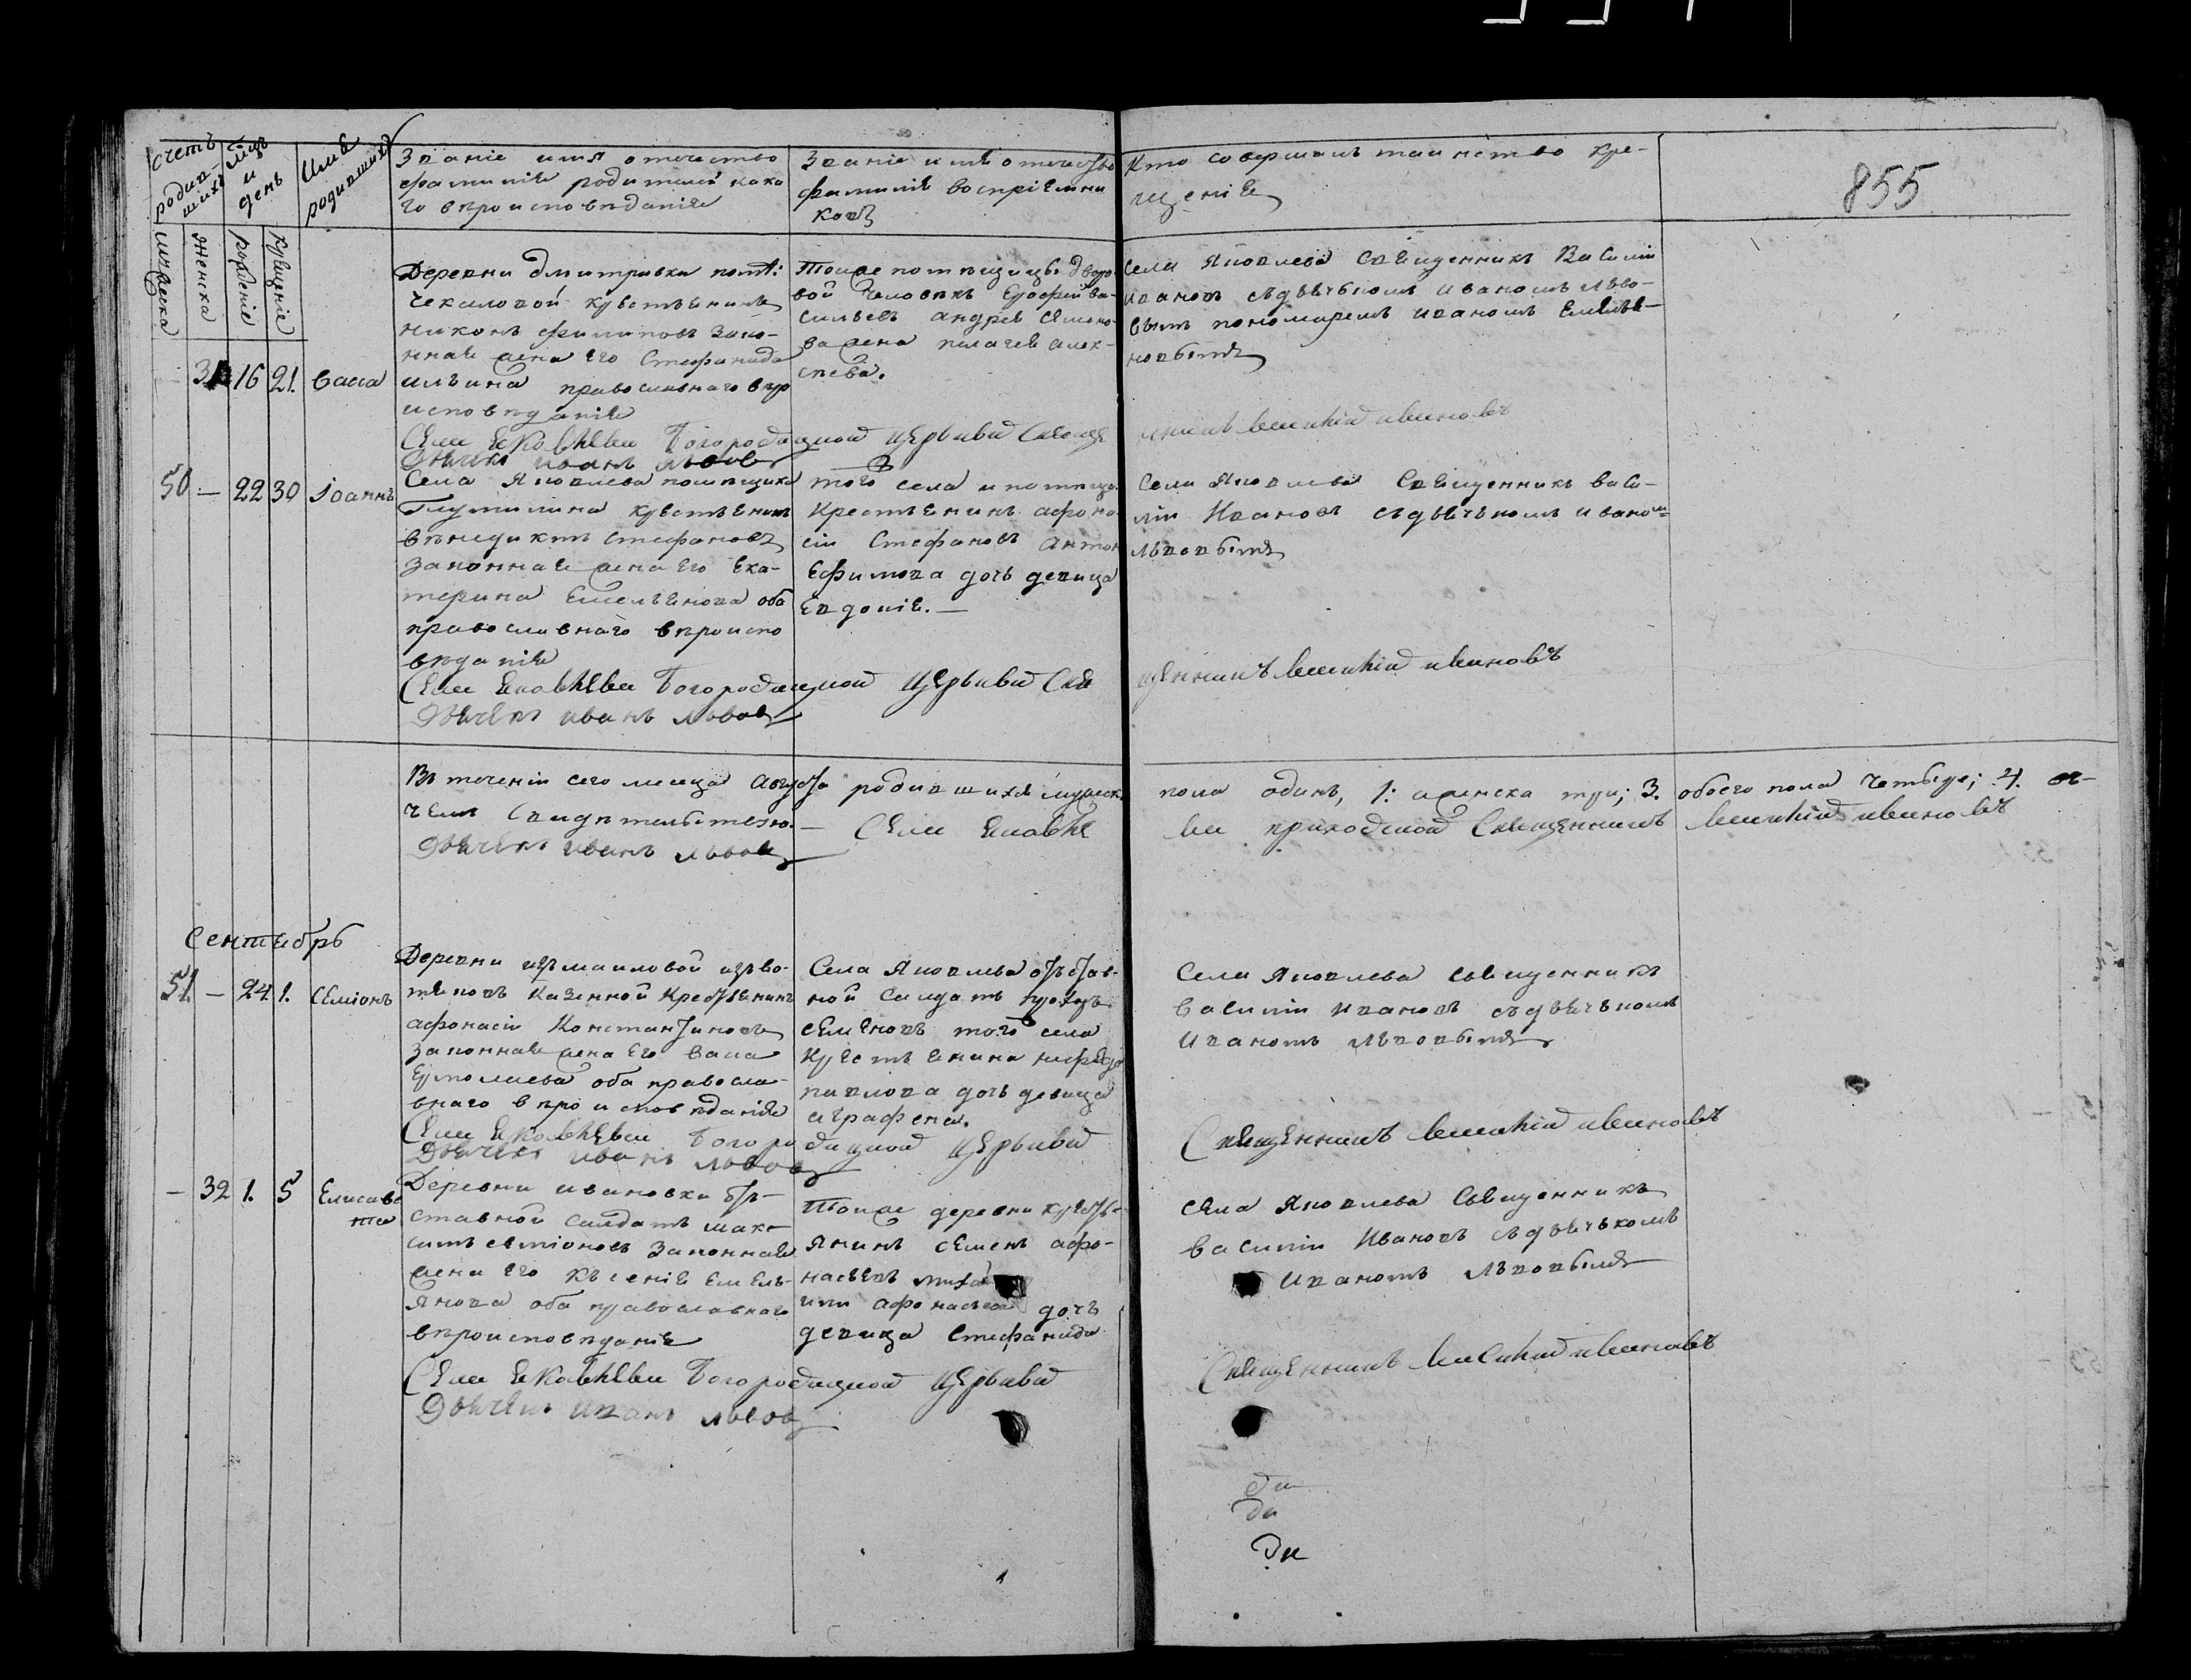 855
Счетъ родившихся
Мцъ и день
Имя родившихъ
Званіе имя отечество
фамиліе родителей како
го вѣроисповѣданія
Званіе имя отечество
фамиліе воспріемни
ковъ
Кто совершалъ таинство кре-
щеніе
мужеска
женска
рожденіе
крещеніе
31 16 21. Васса
Деревни Дмитревки помѣ:
крестьянинъ
Никонъ Филиповъ зако-
нная жена его Стефанида
Ильина православнаго вѣро
исповѣданія
Тоже помѣщицы дворо-
вой человѣкъ Ерофей Ва-
сильевъ Андрея Семено-
ва жена Пелагея Алек-
сѣева.
Села Яковлева Священникъ Василій
Ивановъ съ дьячькомъ Иваномъ Льво-
вымъ пономаремъ Иваномъ Емелья-
новымъ
Села Яковлева Богородицкой церькви Свяще
нникъ Василій Ивановъ
Дьячекъ Иванъ Львовъ
50 — 22 30 Іоаннъ
Села Яковлева помѣщика
крестьянинъ
Венедиктъ Стефановъ
законная жена его Ека-
терина Емельянова оба
православнаго вѣроиспо
вѣданія
того села и помѣщи.
Крестьянинъ Афона-
сій Стефановъ Антон
Ефимова дочь девица
Евдокія. —
Села Яковлева Священникъ Васи-
лій Ивановъ съ дьячькомъ Иваном
Львовымъ
Села Яковлева Богородицкой церькви Свя
щенникъ Василій Ивановъ
Дьячекъ Иванъ Львовъ
Въ теченіи сего месяца Августа родившихся мужеск.
пола одинъ, 1: а женска три; 3. обоего пола четыре; 4. о-
чемъ свидѣтельствую. — Села Яковле
ва приходской Священникъ Василій Ивановъ
Дьячекъ Иванъ Львовъ
Сентябрь
51. — 24. 1. Семіонъ
Деревни Измаиловой изъво-
Казенной Крестьянинъ
Афонасій Константиновъ
законная жена его Васса
Ермолаева оба правосла-
внаго вѣроисповѣданія
Села Яковлева отъстав-
ной салдатъ
Семеновъ того села
Крестьянина Нефеда
Павлова дочь девица
Аграфена.
Села Яковлева священникъ
Василій Ивановъ съ дьячькомъ
Иваномъ Львовымъ
Села Яковлева Богородицкой церькви
Священникъ Василій Ивановъ
Дьячекъ Иванъ Львовъ
— 32 1. 5 Елисаве
та
Деревни Ивановки отъ-
ставной салдатъ Мак-
симъ Семіоновъ законная
жена его Къսенія Емель-
янова оба православнаго
вѣроисповѣданія
Тойже деревни кресть-
янинъ Семенъ Афо-
насьевъ Миха
ила Афонасьева дочь
девица Стефанида
Села Яковлева Священникъ
Василій Ивановъ съ дьячькомъ
Иваномъ Львовымъ
Села Яковлева Богородицкой церькви
Священникъ Василій Ивановъ
Дьячекъ Иванъ Львовъ
Ди
Ди
Ди